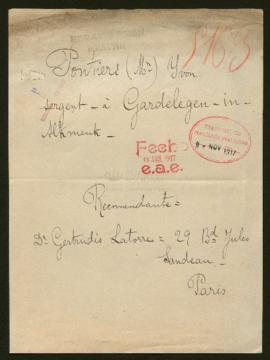 5163
Pontiers (Mr) Yvon
sergent - à Gardelegen - in -
Altmenk -
Fecho
e.a.e.
NOV 1917
Recomendante =
Da Gertrudis Latorre = 29 Bd Jules
Sandeau -
Paris